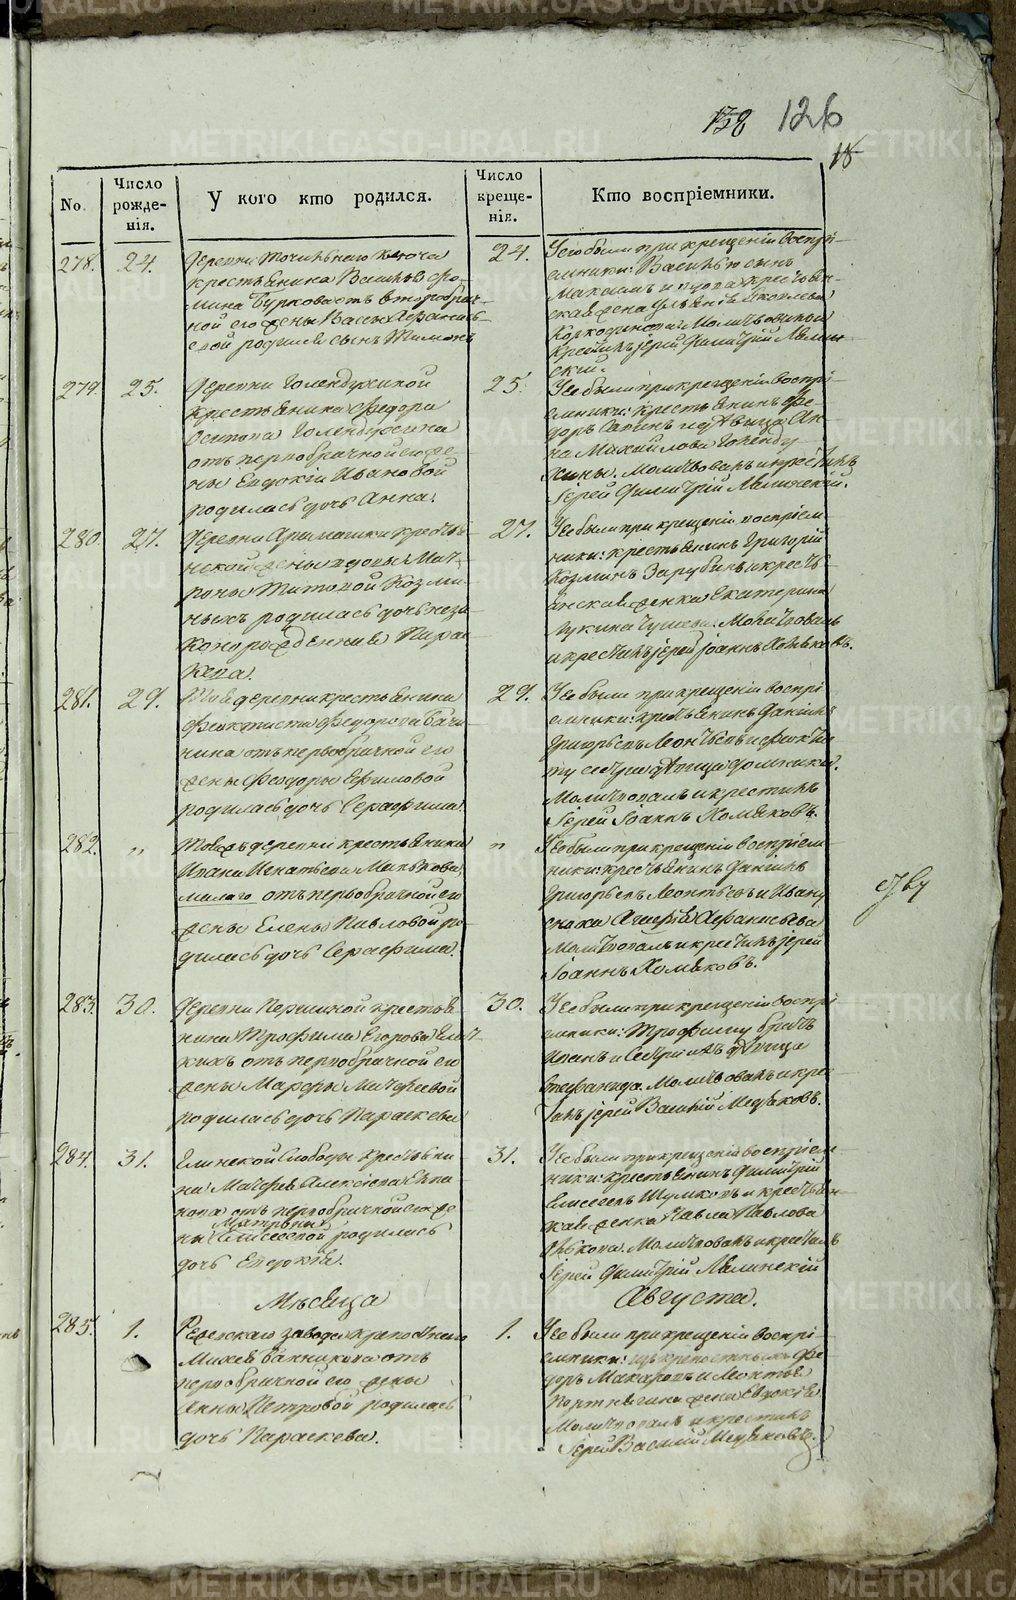 138 126
18
No.
Число рожденія.
У кого кто родился.
Число крещенія.
Кто воспріемники.
278. 24.
Деревни Точильнаго Ключа
крестьянина Василья Фо-
мина Бурковастъ второбрач-
ной его жены Васы Афанась-
евой родился сынъ Тимонъ
24.
У его были при крещеніи воспрі-
емники: Василью сынъ
Максимъ и крестьян-
ская жена Ульянія Яковлева
Молитвовалъ и
крестилъ іерей Димитрій Лялин-
скій.
279. 25.
Деревни Голендухиной
крестьянина Федора
Осипова Голендухина
отъ первобрачной его же-
ны Евдокіи Ивановой
родилась дочь Анна.
25.
У ее были при крещеніи воспрі-
емники: крестьянинъ Фе-
доръ и дѣвица Ан-
на Михайлова Голенду-
хины. Молитвовалъ и крестилъ
іерей Димитрій Лялинскій.
280 27.
Деревни Арамашки крестья-
нской жены вдовы Мат-
роны Титовой Козми-
ныхъ родилась дочь неза-
коннорожденная Парас-
кева.
27.
У ее были при крещеніи воспріем-
ники: крестьянинъ Григорій
Козминъ Зарубинъ и кресть-
янская женка Екатерина
Лукина Молитвовалъ
и крестилъ іерей Іоаннъ Хомяковъ.
281. 29.
Той же деревни крестьянина
Феоктиста Федорова Бачи-
нина отъ первобрачной его
жены Феодоры Ефимовой
родилась дочь Серафима
29.
У ее были при крещеніи воспрі-
емники: крестьянинъ Даніилъ
Григорьевъ Леонтьевъ и Феокти-
сту сестра дѣвица Домникия.
Молитвовалъ и крестилъ
іерей Іоаннъ Хомяковъ.
282. „
Той же деревни крестьянина
Ивана Игнатьева Малькова
малаго отъ первобрачной его
жены Елены Павловой ро-
дилась дочь Серафима.
„
У ее были при крещеніи воспріем-
ники: крестьянинъ Даніилъ
Григорьевъ Леонтьевъ и Ивану
сноха Агафія Афанасьева
Молитвовалъ и крестилъ іерей
Іоаннъ Хомяковъ.
283. 30.
Деревни Першиной крестья-
нина Трофима Егорова
отъ первобрачной его
жены Марфы Матфеевой
родилась дочь Параскева
30.
У ее были при крещеніи воспрі-
емники: Трофиму братъ
Иванъ и сестра ихъ дѣвица
Степанида. Молитвовалъ и крес-
тилъ іерей Василій Медяковъ.
284. 31.
Глинской Слободы крестьяни-
на Матфея Алексіева Епа-
нова отъ первобрачной его же-
ны Матрены Елисеевой родилась
дочь Евдокія.
31.
У ее были при крещеніи воспріем-
ники: крестьянинъ Димитрій
Елисеевъ Шумковъ и крестьян-
ская женка Павла Павлова
Молитвовалъ и крестилъ
іерей Димитрій Лялинскій
Мѣсяца Августа.
285. 1.
Режевскаго завода крепостнаго
Михея Банникова отъ
первобрачной его жены
Анны Петровой родилась
дочь Параскева.
1.
У ее были при крещеніи воспрі-
емники: изъ крепостныхъ Фе-
доръ Макаровъ и Леонтья
Портнягина жена Евдокія
Молитвовалъ и крестилъ
іерей Василій Медяковъ.
METRIKI.GASO-URAL.RU